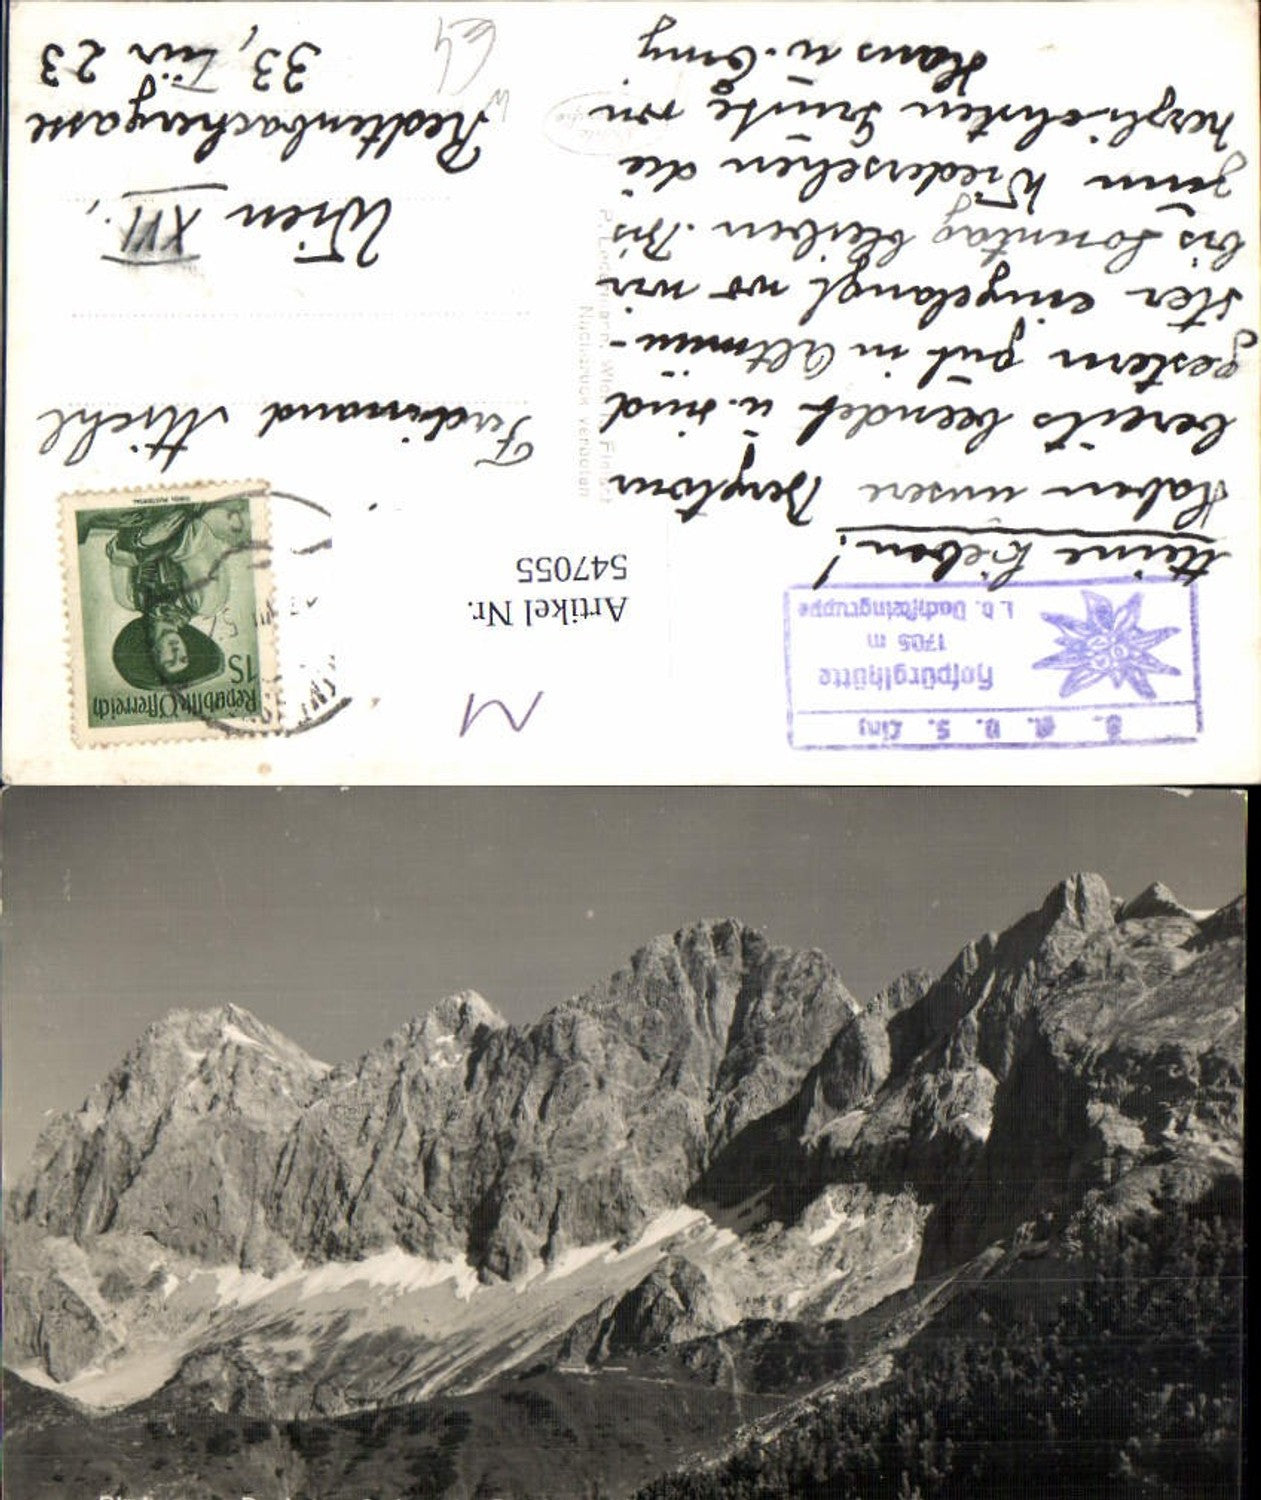 S. A. V. S. Linz
Hofpürglhütte
1705 m
i. d. Dachsteingruppe
Meine Lieben!
Haben unsere Bergtour
bereits beendet u. sind
gestern gut in Altmün-
ster eingelangt wo wir
bis Sonntag bleiben. Bis
zum Wiedersehen die
herzlichsten Grüße von
Hans u. Emy
Republik Österreich
1S
Artikel Nr.
547055
Nachdruck verboten
Ferdinand Michl
Wien XII.,
Redtenbachergasse
33, Tür 23